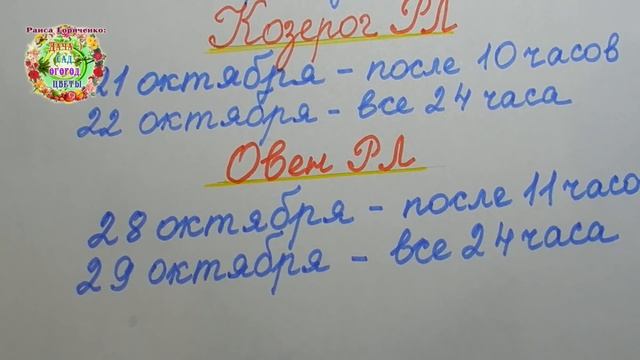 Раиса Горяченко:
ДАЧА
САД
ОГОРОД
ЦВЕТЫ
Козерог РЛ
21 октября - после 10 часов
22 октября - все 24 часа
Овен РЛ
28 октября - после 11 часо
29 октября - все 24 часа